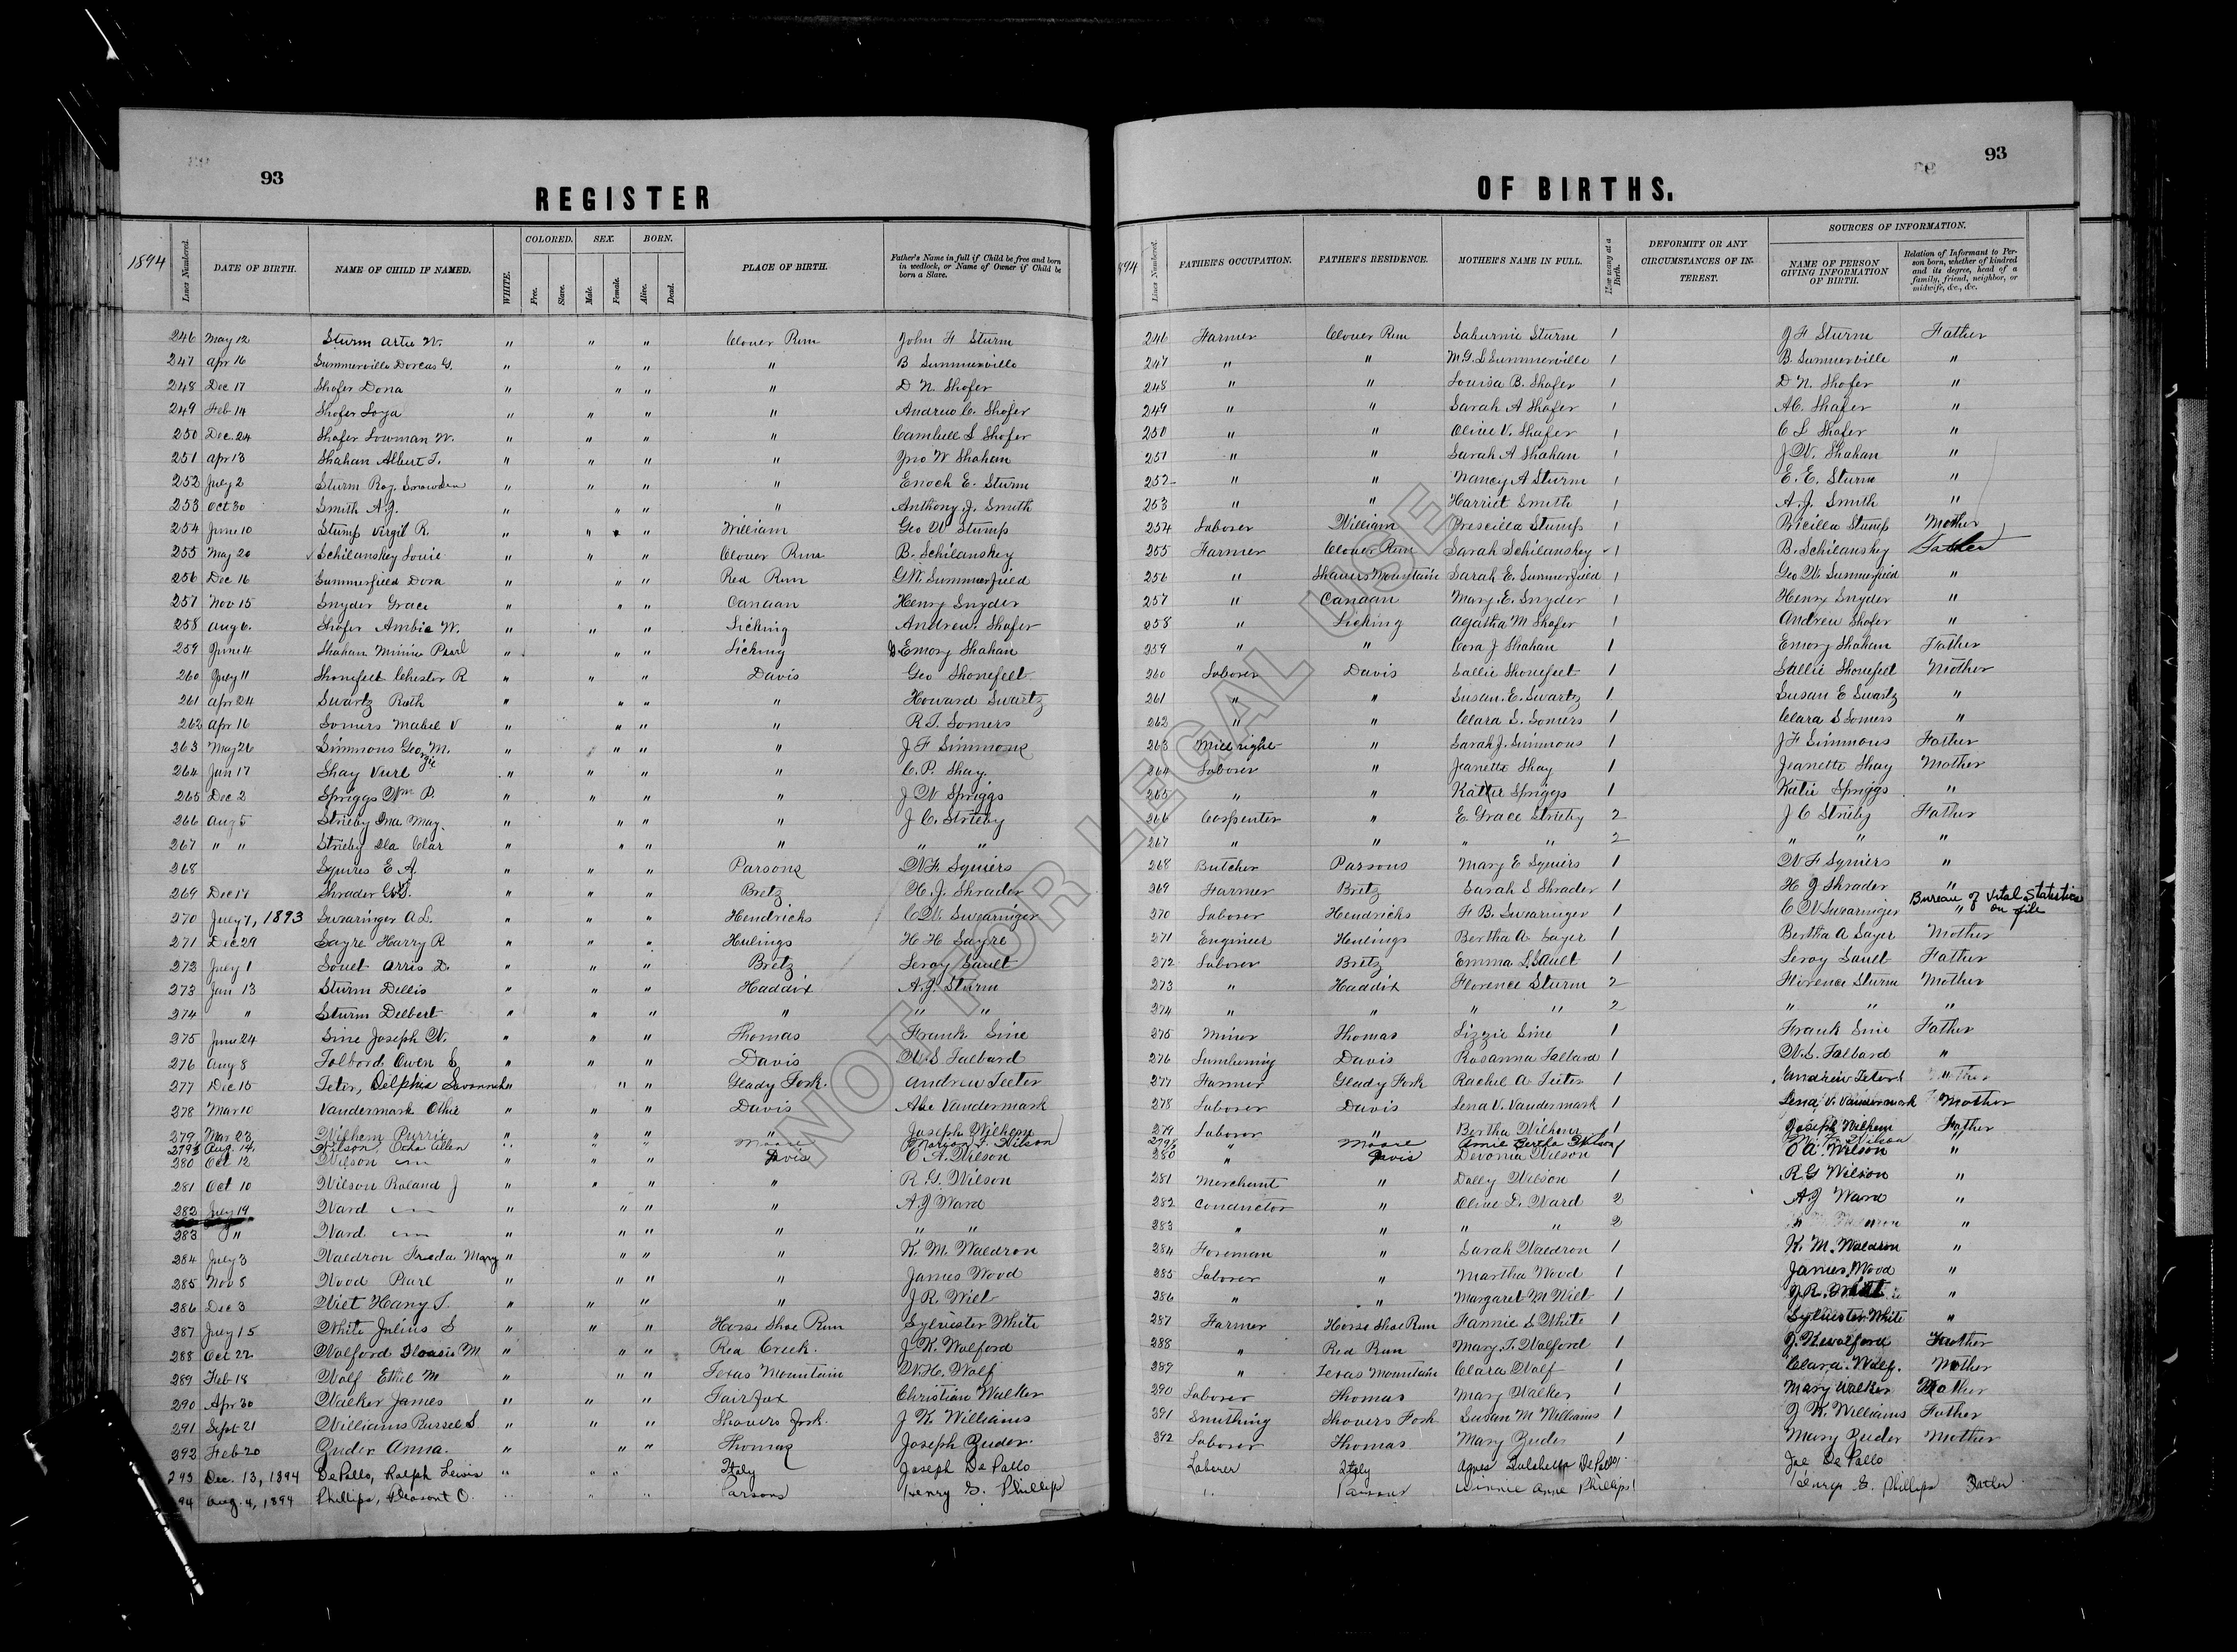 93
REGISTER
1894
Lines Numbered.
DATE OF BIRTH.
NAME OF CHILD IF NAMED.
WHITE.
COLORED.
Free.
Slave.
SEX.
Male.
Female.
BORN.
Alive.
Dead.
PLACE OF BIRTH.
Father's Name in full if Child be free and born in wedlock, or Name of Owner if Child be born a Slave.
246 May 12 Sturm Artie W. " " " Clover Run John F Sturm
247 Apr 16 Summerville Dorcas G. " " " " B Summerville
248 Dec 17 Shafer Dona " " " " D N. Shofer
249 Feb 14 Shofer Loya " " " " Andrew C. Shofer
250 Dec. 24 Shafer Lowman W. " " " " Cambell S Shofer
251 Apr 13 Shahan Albert T. " " " " Jno W Shahan
252 July 2 Sturm Roy. Snowden " " " " Enoch E. Sturm
253 Oct 30 Smith A.J. " " " " Anthony. J. Smith
254 June 10 Stump Virgil R. " " " William Geo W Stump
255 May 20 Schilanskey Louie " " " Clover Run B. Schilanskey
256 Dec 16 Summerfield Dora " " " Red Run G.W. Summerfield
257 Nov 15 Snyder Grace " " " Canaan Henry Snyder
258 Aug 6. Shofer Ambie W. " " " Licking Andrew. Shofer
259 June 4 Shahan Minnie Pearl " " " Licking Emory Shahan
260 July 11 Shonefelt Chester R " " " Davis Geo Shonefelt
261 Apr 24 Swartz Ruth " " " " Howard Swartz
262 Apr 16 Somers Mabel V " " " " R T. Somers
263 May 26 Simmons Georgie M. " " " " J F Simmons
264 Jan 17 Shay Vurl " " " " C. P. Shay.
265 Dec 2 Spriggs Wm P. " " " " J W Spriggs
266 Aug 5 Strieby Ina May. " " " " J C. Strieby
267 " " Strieby Ila Clar " " " " " "
268 Squires E A. " " " Parsons W F. Squiers
269 Dec 17 Shrader " " " Bretz H. J. Shrader
270 July 7, 1893 Swearinger A L. " " " Hendricks C W. Swearinger
271 Dec 29 Sayre Harry R " " " Hulings H H Sayre
272 July 1 Soult Arris D. " " " Bretz Leroy Sault
273 Jan 13 Sturm Dellis " " " Haddix A. J. Sturm
274 " Sturm Delbert " " " " " "
275 June 24 Sine Joseph W. " " " Thomas Frank Sine
276 Aug 8 Tolbord Owen S " " " Davis W S Talbard
277 Dec 15 Teter, Delphia Savannah " " " Glady Fork. Andrew Teeter
278 Mar 10 Vandermark Othie " " " Davis Abe Vandermark
279 Mar 23 Wilhem Purrie " " " " Joseph Wilhem
279½ Aug. 14. Wilson, Ocha Allen " " " Moore Marion F. Wilson
280 Oct 12 Wilson " " " Davis C A. Wilson
281 Oct 10 Wilson Roland J " " " " R. G. Wilson
282 July 19 Ward " " " " A J Ward
283 " Ward " " " " " "
284 July 3 Waldron Freda Mary " " " " K. M. Waldron
285 Nov 8 Wood Pearl " " " " James Wood
286 Dec 3 Wilt Harry T. " " " " J R. Wilt
287 July 15 White Julius S " " " Horse Shoe Run Sylvester White
288 Oct 22 Wolford M. " " " Red Creek. J K. Wolford
289 Feb 18 Wolf Ethel M " " " Texas Mountain W. H. Wolf
290 Apr 30 Walker James " " " Fairfax Christian Walker
291 Sept 21 Williams Russel S. " " " Shavers Fork. J K. Williams
292 Feb 20 Zuder Anna. " " " Thomas Joseph Zuder.
293 Dec. 13, 1894 DePallo, Ralph Lewis " " " Italy Joseph De Pallo
94 Aug. 4, 1894 Phillips, Pleasant O. " " " Parsons Henry G. Phillips
93
OF BIRTHS.
894
Lines Numbered.
FATHER'S OCCUPATION.
FATHER'S RESIDENCE.
MOTHER'S NAME IN FULL.
How many at a Birth.
DEFORMITY OR ANY CIRCUMSTANCES OF INTEREST.
SOURCES OF INFORMATION.
NAME OF PERSON GIVING INFORMATION OF BIRTH.
Relation of Informant to Person born, whether of kindred and its degree, head of a family, friend, neighbor, or midwife, &c., &c.
246 Farmer Clover Run Saburnie Sturm 1 J F Sturm Father
247 " " M. G. S Summerville 1 B. Summerville "
248 " " Louisa B. Shofer 1 D N. Shofer "
249 " " Sarah A Shofer 1 A C. Shafer "
250 " " Olive V. Shafer 1 C S Shofer "
251 " " Sarah A Shahan 1 J W. Shahan "
252 " " Nancy A Sturm 1 E. E. Sturm "
253 " " Harriet Smith 1 A. J. Smith "
254 Laborer William Prescilla Stump 1 Pricilla Stump Mother
255 Farmer Clover Run Sarah Schilanskey 1 B. Schilanskey Father
256 " Shavers Mountain Sarah E. Summerfield 1 Geo W. Summerfield "
257 " Canaan Mary. E. Snyder 1 Henry Snyder "
258 " Licking Agatha M Shofer 1 Andrew Shofer "
259 " " Cora J Shahan 1 Emory Shahan Father
260 Laborer Davis Sallie Shonefelt 1 Sallie Shonefelt Mother
261 " " Susan. E. Swartz 1 Susan E Swartz "
262 " " Clara S. Somers 1 Clara S Somers "
263 Millright " Sarah J. Simmons 1 J F Simmons Father
264 Laborer " Jeanette Shay 1 Jeanette Shay Mother
265 " " Katie Spriggs 1 Katie Spriggs "
266 Carpenter " E. Grace Strieby 2 J C Strieby Father
267 " " " " 2 " " "
268 Butcher Parsons Mary E Squiers 1 W F Squiers "
269 Farmer Bretz Sarah S Shrader 1 H J Shrader "
270 Laborer Hendricks F B. Swearinger 1 C W Swearinger " Bureau of Vital Statistics on file
271 Engineer Hulings Bertha A Sayer 1 Bertha A Sayer Mother
272 Laborer Bretz Emma S. Sault 1 Leroy Sault Father
273 " Haddix Florence Sturm 2 Florence Sturm Mother
274 " " " " 2 " " "
275 Minor Thomas Lizzie Sine 1 Frank Sine Father
276 Lumbering Davis Rosanna Talbard 1 W. S. Talbard "
277 Farmer Glady Fork Rachel A Teeter 1 Andrew Teter
278 Laborer Davis Lena V. Vandermark 1 Lena V. Vandermark Mother
279 Laborer " Bertha Wilhem 1 Joseph Wilhem Father
279½ Moore Amie Bertha Wilson 1 Wilson "
280 " Davis Devonia Wilson C A. Wilson "
281 Merchant " Dolly Wilson 1 R G Wilson "
282 Conductor " Olive D. Ward 2 A. J Ward "
283 " " " " 2 "
284 Foreman " Sarah Waldron 1 K. M. Waldron "
285 Laborer " Martha Wood 1 James Wood "
286 " " Margaret M Wilt 1 J. R. "
287 Farmer Horse Shoe Run Fannie S White 1 Sylvester White "
288 " Red Run Mary. T. Wolford 1 J. K Wolford Father
289 " Texas Mountain Clara Wolf 1 Clara. Wolf. Mother
290 Laborer Thomas Mary Walker 1 Mary Walker Mother
391 Smithing Shavers Fork Susan M Williams 1 J K. Williams Father
392 Laborer Thomas Mary Zuder 1 Mary Zuder Mother
Laborer Italy Agnes DePallo Joe De Pallo
" Parsons Winnie Anne Phillips 1 George G. Phillips Father
NOT FOR LEGAL USE